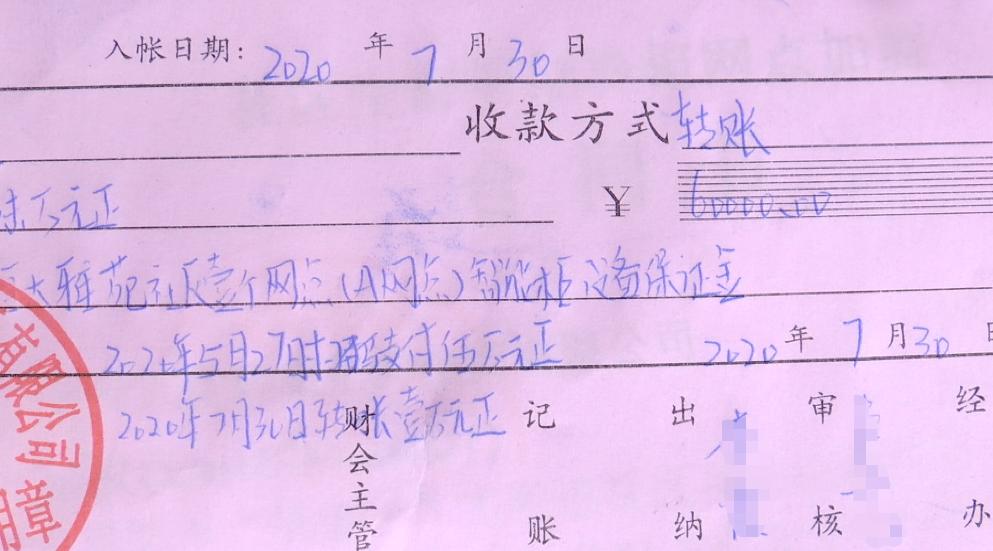 入帐日期: 2020 年 7 月 30 日
收款方式 转账
陆万元正 ¥ 60000.00
大雅苑社区壹个网点(A网点)智能柜设备保证金
2020年5月27日扫码支付伍万元正 2020 年 7 月 30 日
2020年7月30日转账壹万元正
财会主管 记账 出纳 审核 经办
有限公司
用章